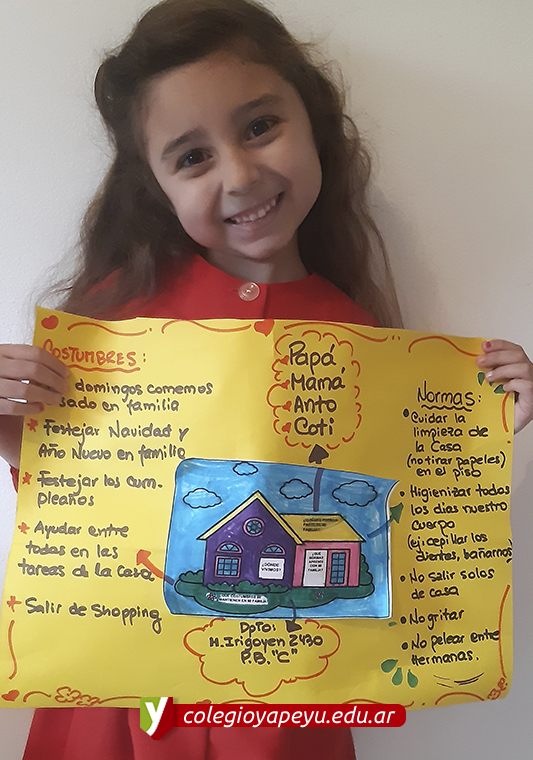 COSTUMBRES:
domingos comemos
sado en familia
* Festejar Navidad y
Año Nuevo en familia
* Festejar los cum-
pleaños
* Ayudar entre
todas en las
tareas de la casa
* Salir de Shopping
Papá
Mamá
Anto
Coti
¿DÓNDE
VIVIMOS?
¿QUÉ
NORMAS
APRENDO
CON MI
FAMILIA?
¿QUÉ COSTUMBRES SE
MANTIENEN EN MI FAMILIA?
Dpto:
H. Irigoyen 2430
P.B. "C"
Normas:
• Cuidar la
limpieza de
la casa
(no tirar papeles)
en el piso
• Higienizar todos
los días nuestro
cuerpo
(ej: cepillar los
dientes, bañarnos)
• No salir solas
de casa
• No gritar
• No pelear entre
Hermanas.
y colegioyapeyu.edu.ar